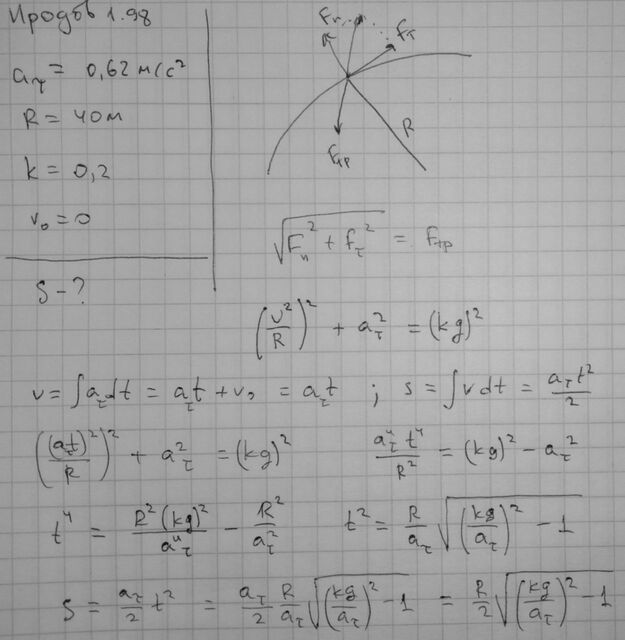 Иродов 1.98
a_τ = 0,62 м/с²
R = 40м
k = 0,2
v₀ = 0
S - ?
Fn
Fτ
R
Fтр
√(Fn² + fτ²) = Fтр
(v²/R)² + a_τ² = (kg)²
v = ∫a_τ dt = a_τ t + v₀ = a_τ t ; s = ∫v dt = a_τ t²/2
((a_τ t)²/R)² + a_τ² = (kg)² a_τ⁴ t⁴/R² = (kg)² - a_τ²
t⁴ = R²(kg)²/a_τ⁴ - R²/a_τ² t² = R/a_τ √((kg/a_τ)² - 1)
S = a_τ/2 t² = a_τ/2 R/a_τ √((kg/a_τ)² - 1) = R/2 √((kg/a_τ)² - 1)